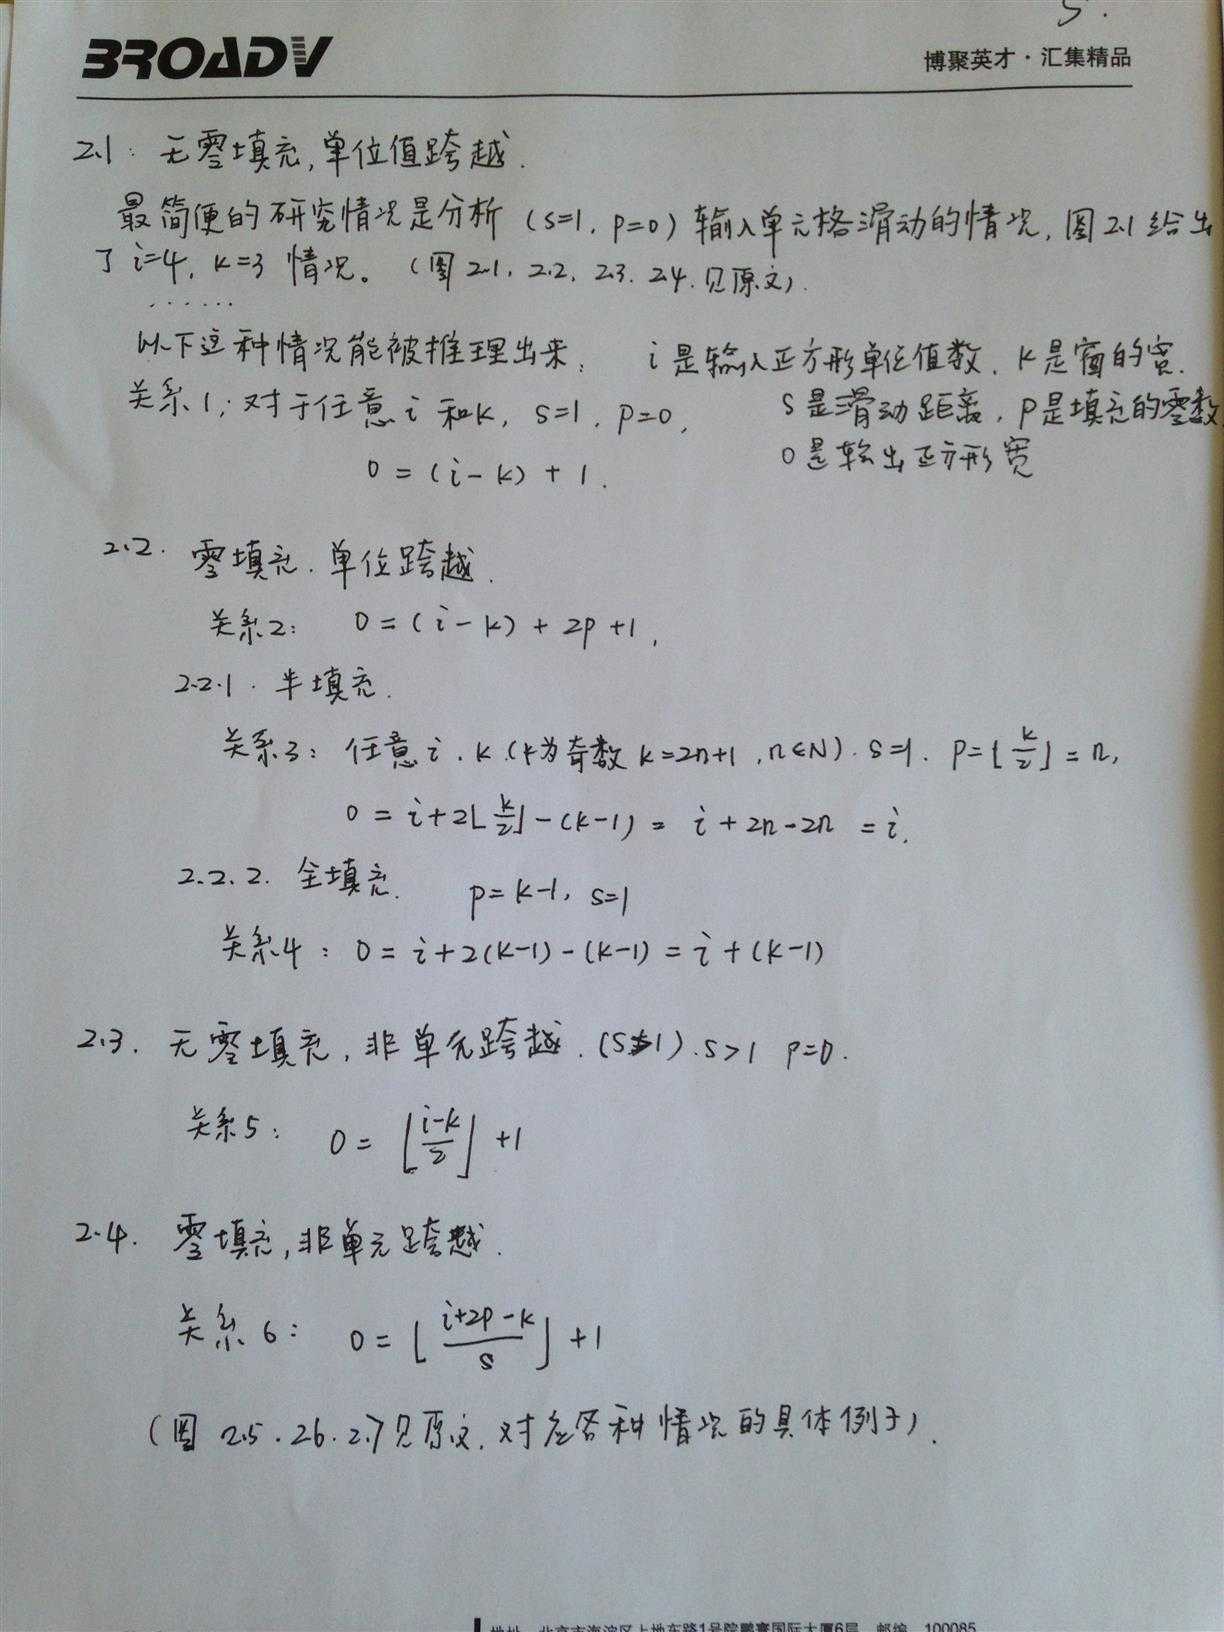 5.
BROADV
博聚英才·汇集精品
2.1: 无零填充,单位值跨越.
最简便的研究情况是分析 (s=1, p=0) 输入单元格滑动的情况, 图2.1给出
了 i=4, k=3 情况。(图2.1, 2.2, 2.3. 2.4. 见原文).
......
以下这种情况能被推理出来: i是输入正方形单位值数, k是窗的宽.
关系1: 对于任意 i 和 k, s=1, p=0, s是滑动距离, p是填充的零数,
o = (i-k) + 1. o是输出正方形宽
2.2. 零填充. 单位跨越.
关系2: o = (i-k) + 2p + 1,
2.2.1. 半填充.
关系3: 任意 i. k (k为奇数 k=2n+1, n∈N). s=1. p=⌊k/2⌋=n,
o = i+2⌊k/2⌋-(k-1) = i+2n-2n = i.
2.2.2. 全填充. p=k-1, s=1
关系4: o = i+2(k-1)-(k-1) = i+(k-1)
2.3. 无零填充, 非单元跨越. (s≠1). s>1 p=0.
关系5: o = ⌊(i-k)/2⌋ + 1
2.4. 零填充, 非单元跨越.
关系6: o = ⌊(i+2p-k)/s⌋ + 1
(图 2.5. 2.6. 2.7见原文, 对应各种情况的具体例子).
地址 北京市海淀区上地东路1号院鹏寰国际大厦6层 邮编 100085